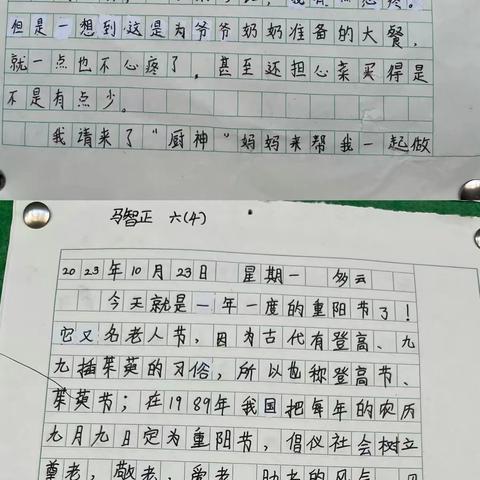 但是一想到这是为爷爷奶奶准备的大餐，
就一点也不心疼了，甚至还担心菜买得是
不是有点少。
我请来了“厨神”妈妈来帮我一起做
马智正 六(4)
2023年10月23日 星期一 多云
今天就是一年一度的重阳节了！
它又名老人节，因为古代有登高、九
九插茱萸的习俗，所以也称登高节、
茱萸节；在1989年我国把每年的农历
九月九日定为重阳节，倡仪社会树立
尊老、敬老、爱老、助老的风气